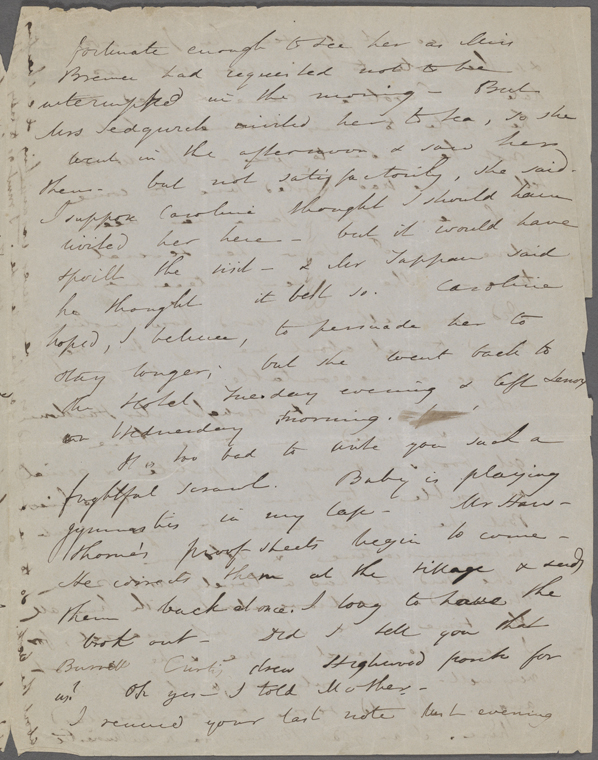 fortunate enough to see her as Miss
Bremer had requested not to be
interrupted in the morning - But
Mrs Sedgwick invited her to tea, so she
went in the afternoon & saw her
then - but not satisfactorily, she said.
I suppose Caroline thought I should have
invited her here - but it would have
spoilt the visit - & Mr Tappan said
he thought it best so. Caroline
hoped, I believe, to persuade her to
stay longer; but she went back to
the Hotel Tuesday evening & left Lenox
on Wednesday morning.
It is too bad to write you such a
frightful scrawl. Baby is playing
gymnastics in my lap - Mr Haw-
thorne's proof sheets begin to come -
He corrects them at the village & sends
them back at once. I long to have the
book out - Did I tell you that
Burrell Curtis drew Highwood porch for
us? Oh yes - I told Mother -
I received your last note last evening